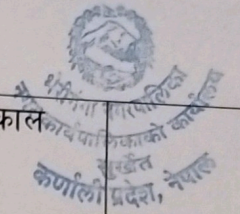 भेरीगंगा नगरपालिका
नगर कार्यपालिकाको कार्यालय
काल
सुर्खेत
कर्णाली प्रदेश, नेपाल